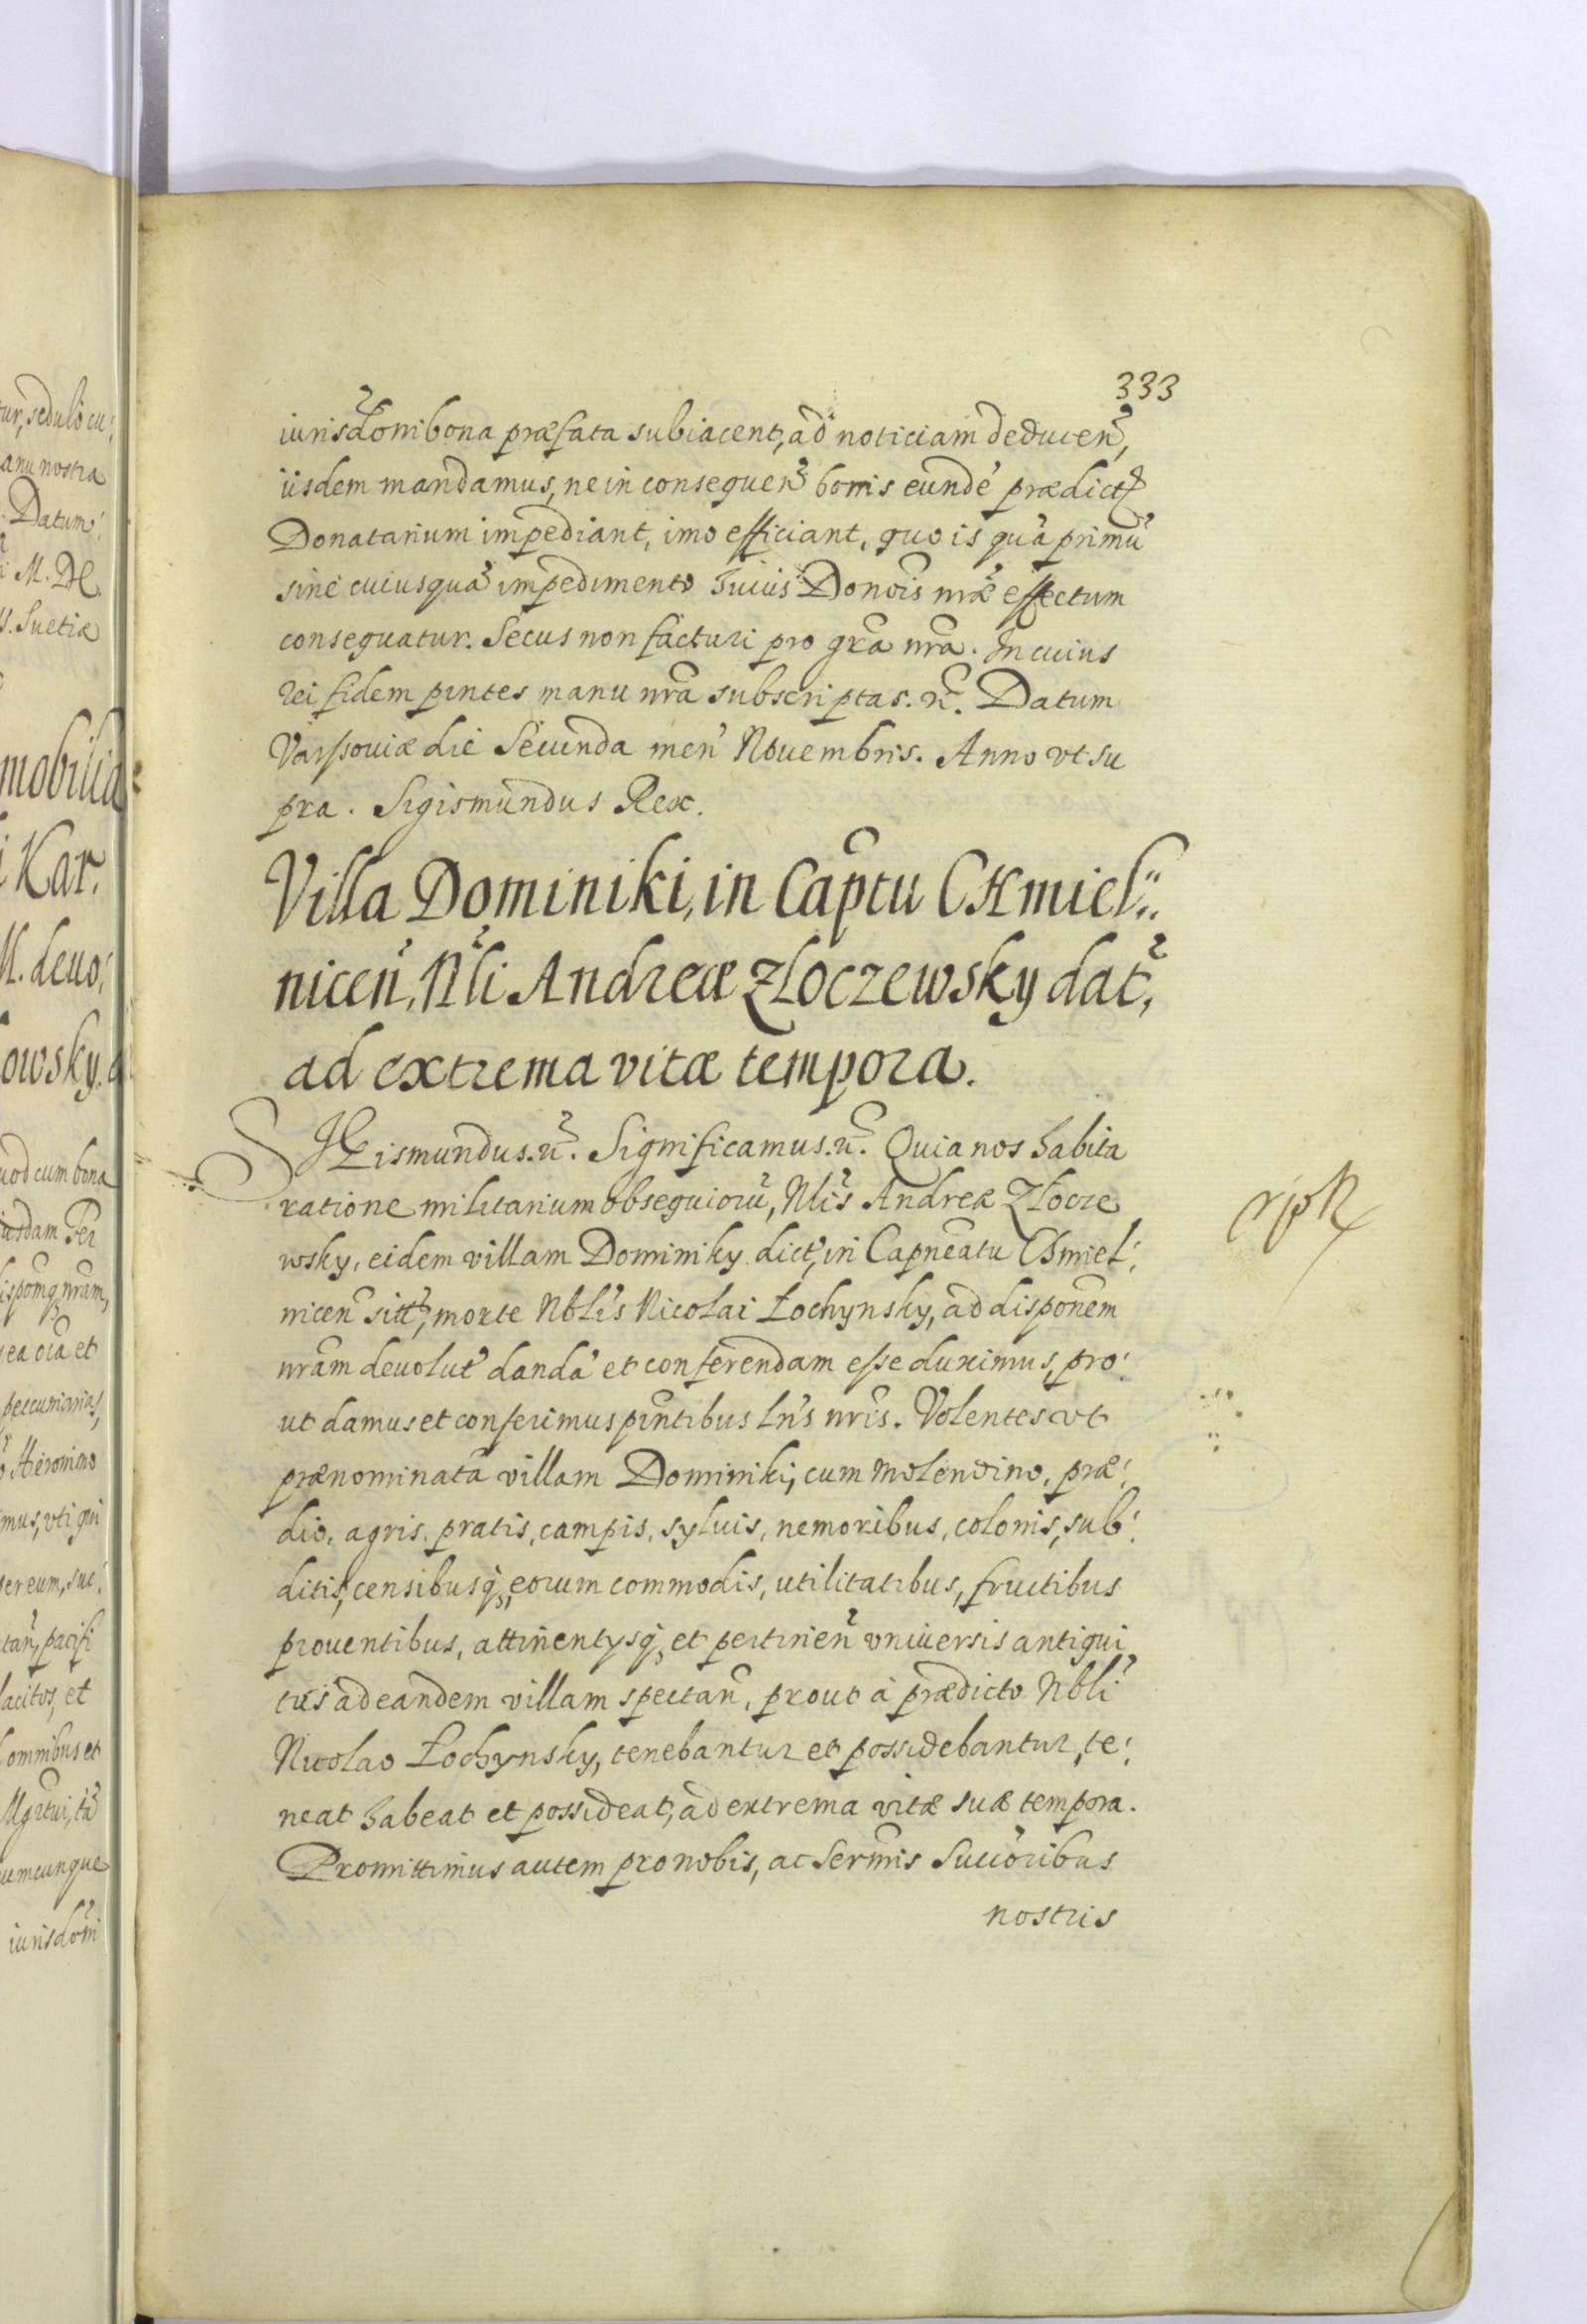 333
iurisdoni bona præfata subiacent, ad noticiam deducen,
iisdem mandamus, ne in consequen bonis eunde prædict
Donatarium impediant, imo efficiant, quo is qua primu
sine cuiusqua impedimento huius Donois nræ effectum
consequatur. Secus non facturi pro gra nra. In cuius
rei fidem pntes manu nra subscriptas. Datum
Varssoviæ die Secunda men Novembris. Anno vt su
pra. Sigismundus Rex.
Villa Dominiki, in Captu CHmiel:
nicen, Nli Andreæ Zloczewsky dat,
ad extrema vitæ tempora.
SIGismundus. Significamus. Quia nos habita
ratione militarium obsequioru, Nlis Andreæ Złocze
wsky, eidem villam Dominiky dict, in Capneatu CHmiel:
nicen sitt, morte Nblis Nicolai Łochynsky, ad disponem
nram devolut danda et conferendam esse duximus, pro:
ut damus et conferimus pntibus Lris nris. Volentes vt
prænominata villam Dominiki, cum molendino, præ:
dio, agris, pratis, campis, sylvis, nemoribus, colonis, sub:
ditis, censibusq, eorum commodis, utilitatibus, fructibus
proventibus, attinentysq, et pertinen vniversis antiqui
tus ad eandem villam spectan, prout à prædicto Nbli
Nicolao Łochynsky, tenebantur et possidebantur, te:
neat habeat et possideat, ad extrema vitæ suæ tempora.
Promittimus autem pro nobis, ac Sermis Succoribus
nostris